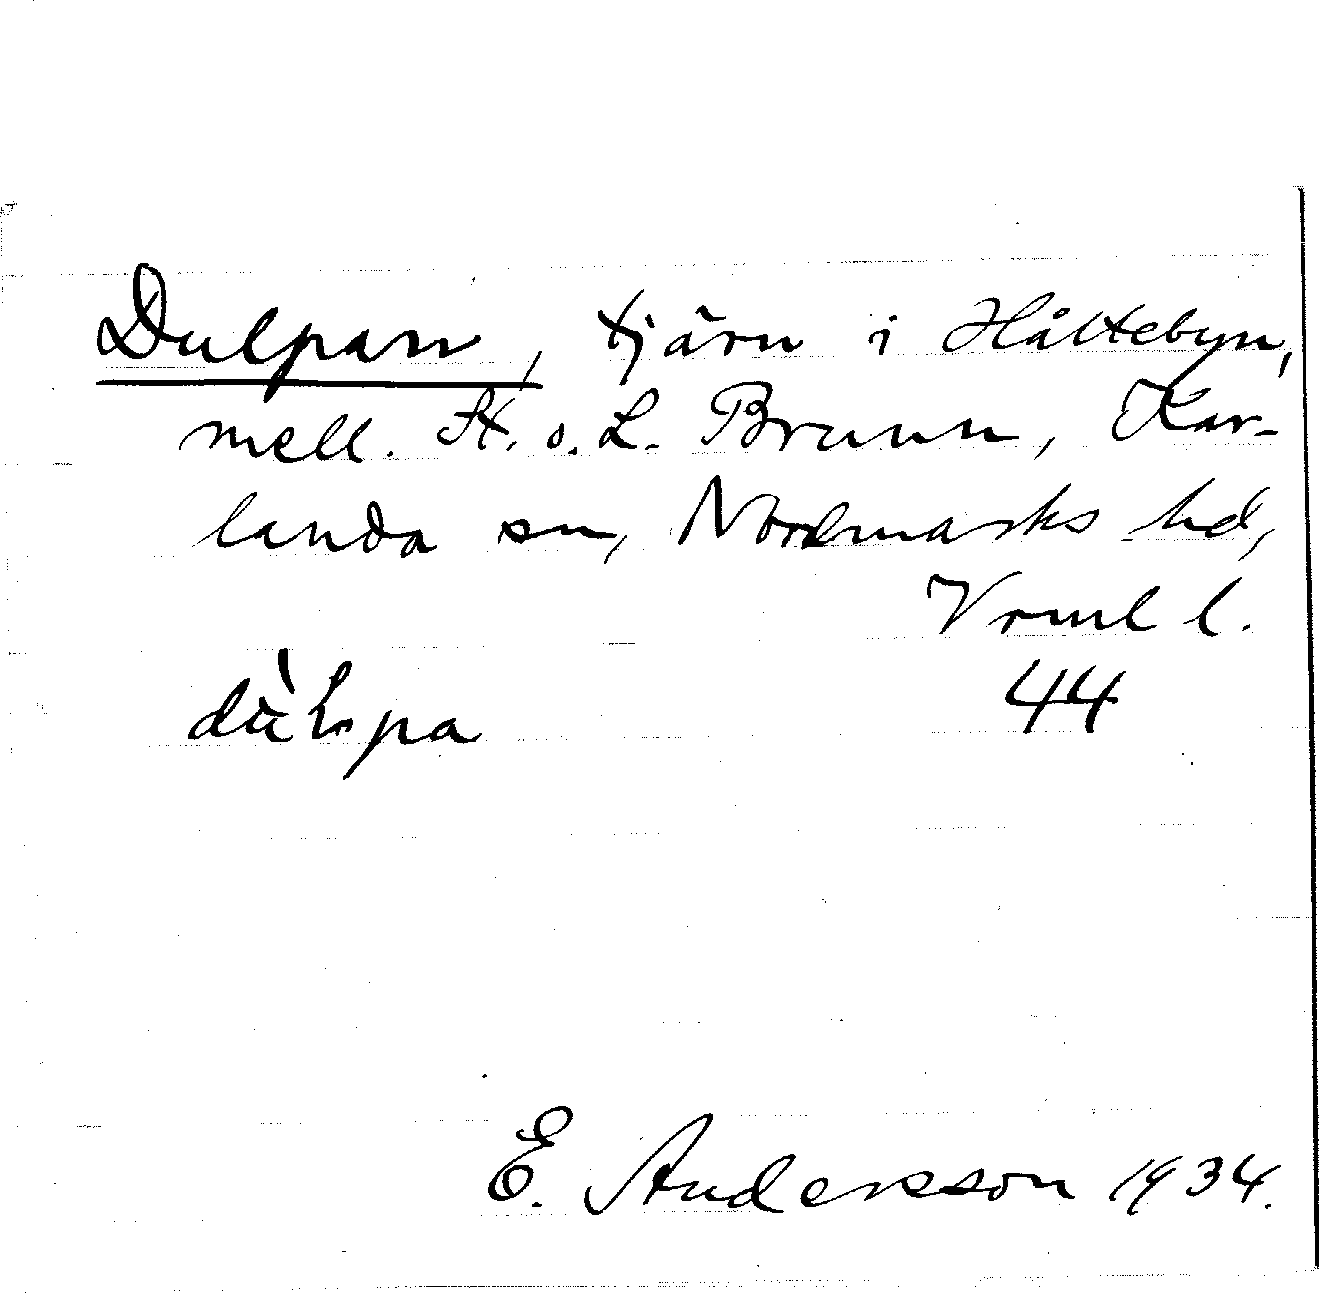 Dulpan, tjärn i Håltebyn,
mell. St. o. L. Brunn, Kar-
landa sn, Nordmarks hd,
Vrml l.
44
E. Andersson 1934.